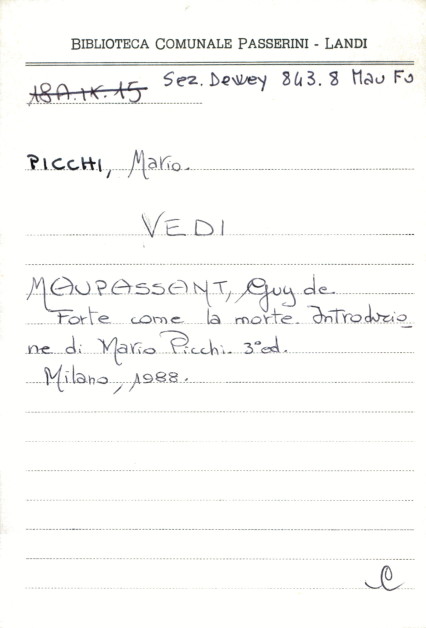 BIBLIOTECA COMUNALE PASSERINI - LANDI
18A.IX.15 Sez. Dewey 843.8 Mau Fo
PICCHI, Mario.
VEDI
MAUPASSANT, Guy de
Forte come la morte. Introduzio_
ne di Mario Picchi. 3ªed.
Milano, 1988.